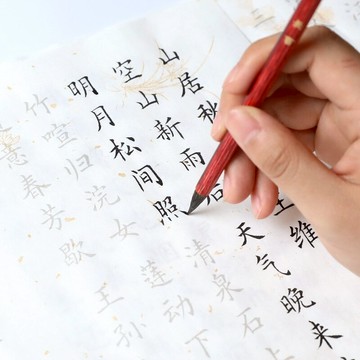 山居秋 王维
空山新雨后 天气晚来
明月松间照 清泉石
竹喧归浣女 莲动下
意春芳歇 王孙